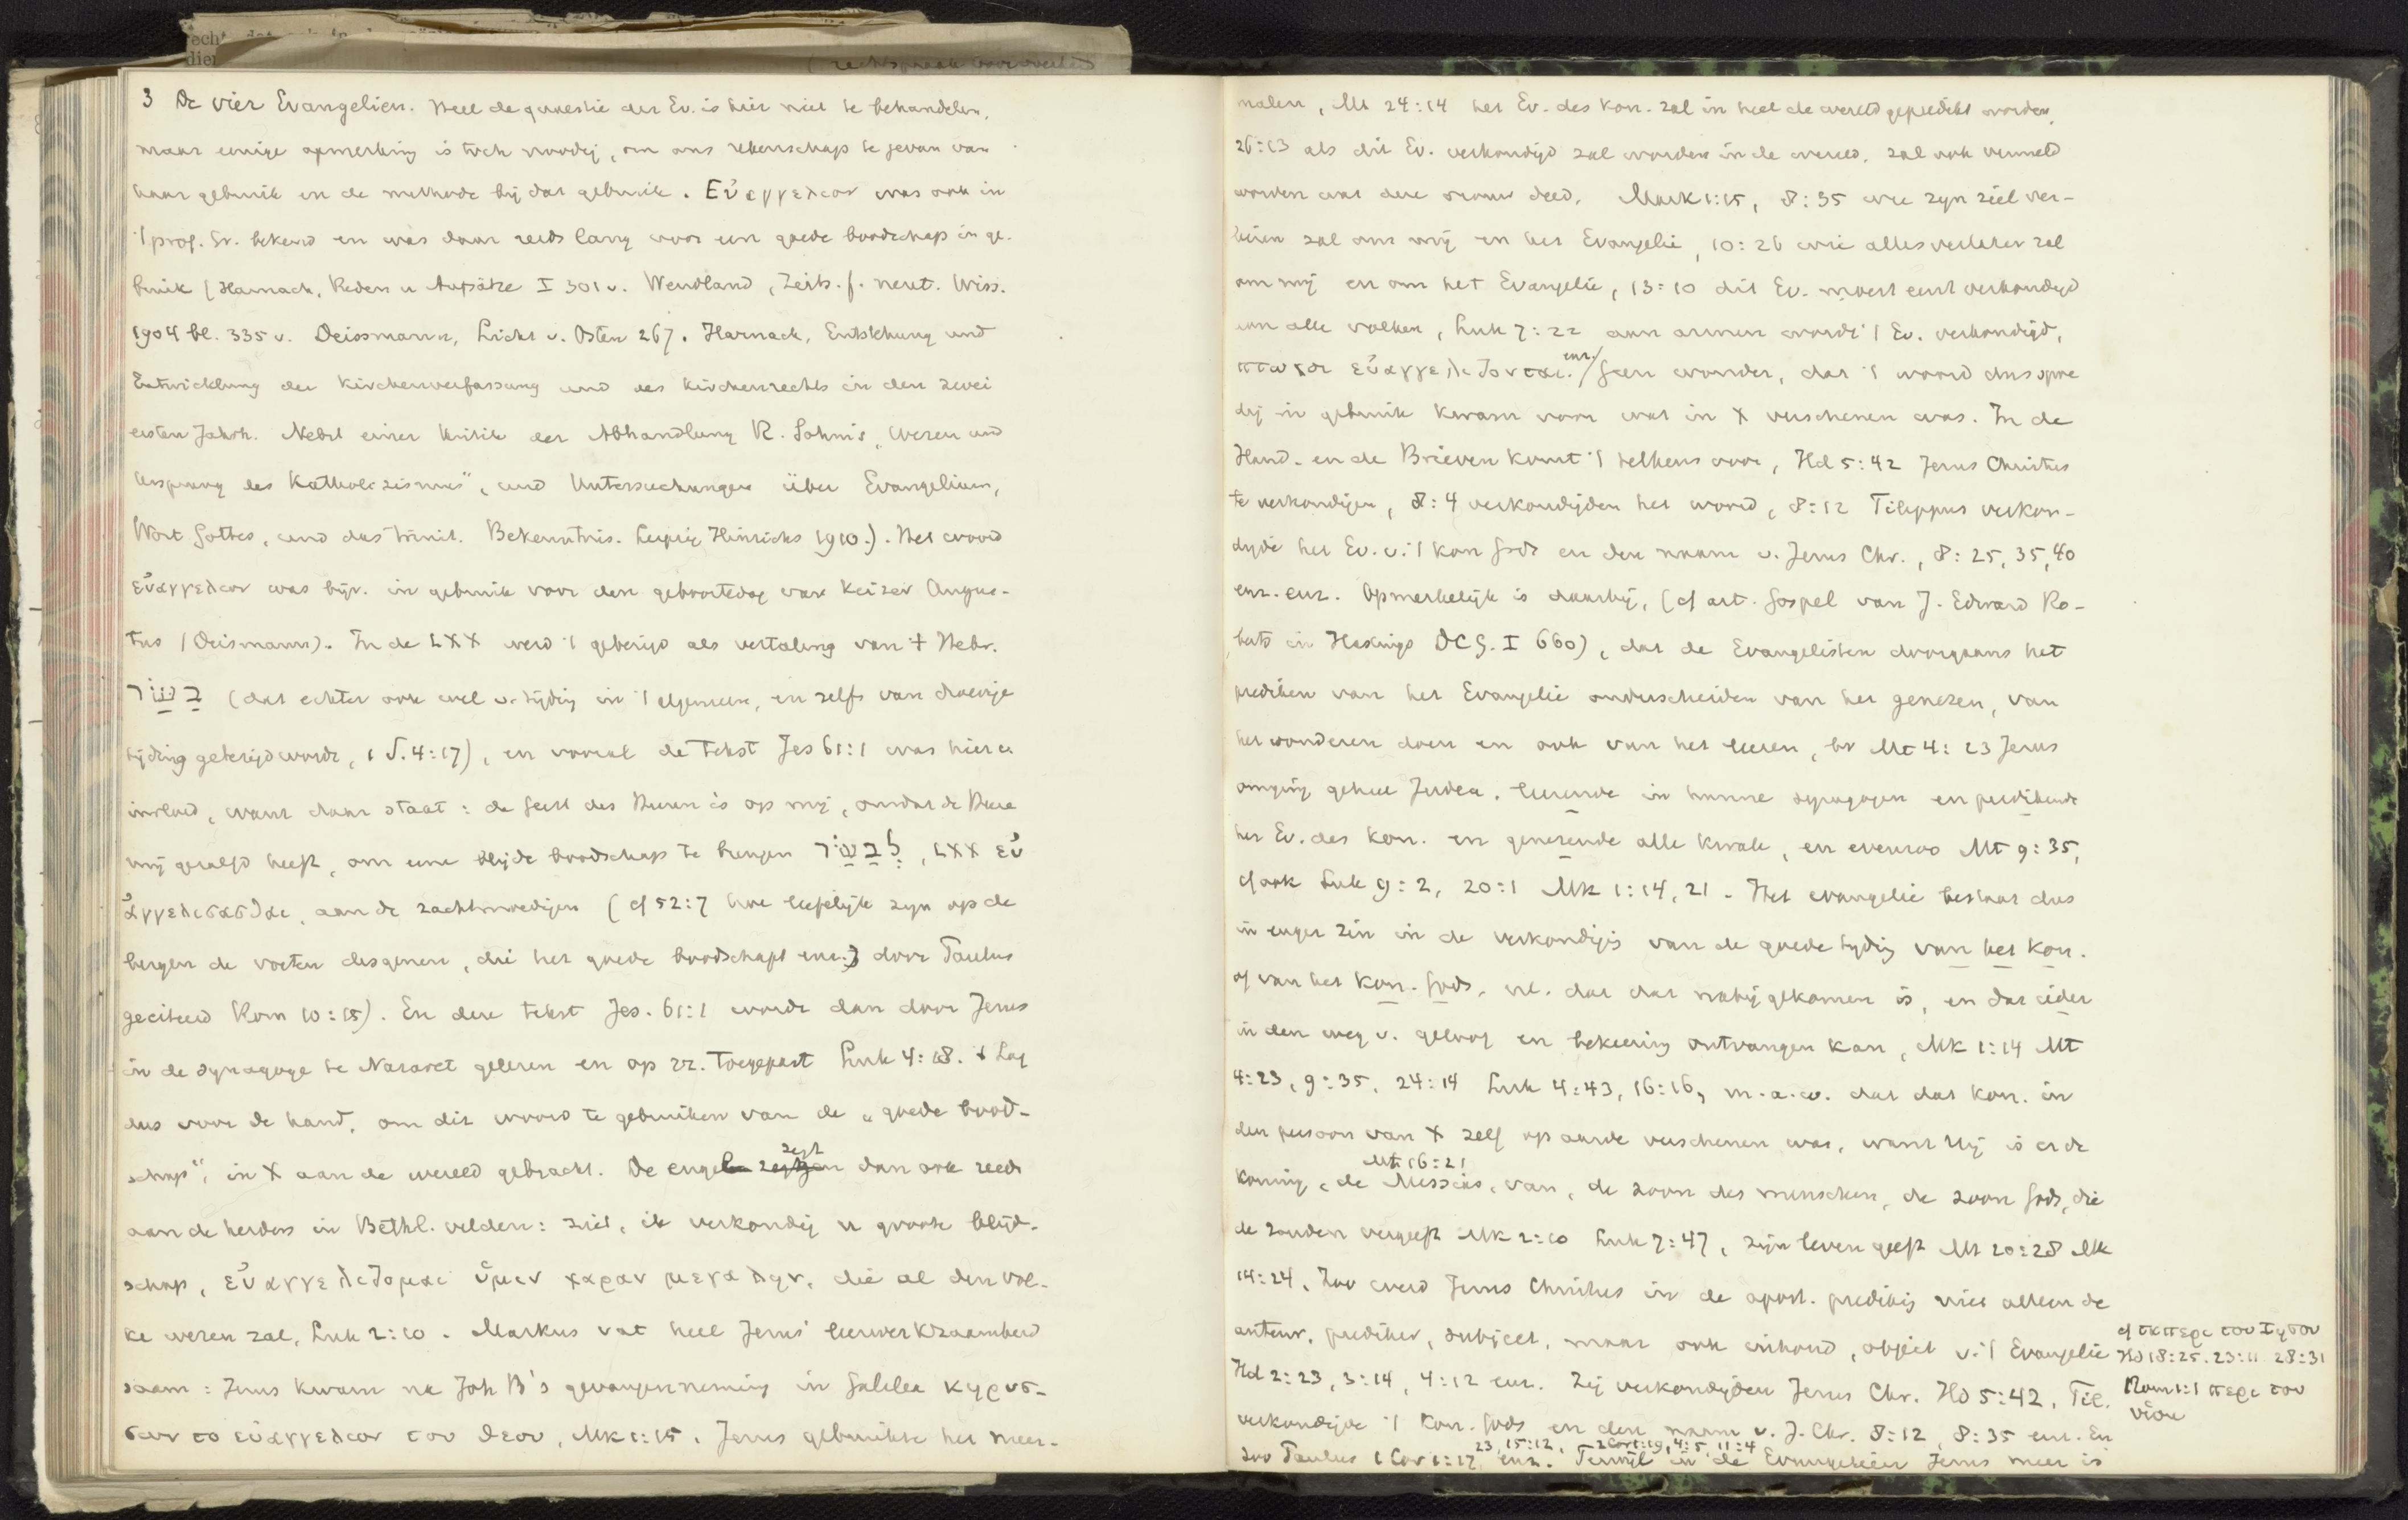 3 De vier Evangelien. Heel de quaestie der Ev. is hier niet te behandelen,
maar eenige opmerking is toch noodig, om ons rekenschap te geven van
haar gebruik en de methode bij dat gebruik. Εὐαγγελιον was ook in
't prof. Gr. bekend en was daar reeds lang voor een goede boodschap in ge-
bruik (Harnack, Reden u Aufsätze I 301 v. Wendland, Zeits. f. neut. Wiss.
1904 bl. 335 v. Deissmann, Licht v. Osten 267. Harnack, Entstehung und
Entwicklung der Kirchenverfassung und des Kirchenrechts in den zwei
ersten Jahrh. Nebst einer Kritik der Abhandlung R. Sohm's, Wesen und
Ursprung des Katholizismus", und Untersuchungen über Evangelium,
Wort Gottes, und das trinit. Bekenntnis. Leipzig Hinrichs 1910.). Het woord
εὐαγγελιον was bijv. in gebruik voor den geboortedag van keizer Augus-
tus (Deismann). In de LXX werd 't gebezigd als vertaling van 't Hebr.
בשׂר (dat echter ook wel v. tijding in 't algemeen, en zelfs van droevige
tijding gebezigd wordt, 1 S. 4:17), en vooral de tekst Jes 61:1 was hier v.
invloed, want daar staat: de Geest des Heeren is op mij, omdat de Heere
mij gezalfd heeft, om eene blijde boodschap te brengen לבשׂר, LXX εὐ
ἀγγελισασθαι, aan de zachtmoedigen (cf 52:7 hoe liefelijk zijn op de
bergen de voeten desgenen, die het goede boodschapt enz.) door Paulus
geciteerd Rom 10:15). En deze tekst Jes. 61:1 wordt dan door Jezus
in de synagoge te Nazaret gelezen en op zz. toegepast Luk 4:18. 't Lag
dus voor de hand, om dit woord te gebruiken van de „goede bood-
schap", in X aan de wereld gebracht. De engel zegt dan ook reeds
aan de herders in Bethl. velden: ziet, ik verkondig u groote blijd-
schap, εὐαγγελιζομαι ὑμιν χαραν μεγαλην, die al den vol-
ke wezen zal, Luk 2:10. Markus vat heel Jezus' leerwerkzaamheid
saam: Jezus kwam na Joh B's gevangenneming in Galilea κηρυσ-
σων το εὐαγγελιον του θεου, Mk 1:15. Jezus gebruikte het meer-
malen, Mt 24:14 het Ev. des kon. zal in heel de wereld gepredikt worden,
26:13 als dit Ev. verkondigd zal worden in de wereld, zal ook vermeld
worden wat deze vrouw deed, Mark 1:15, 8:35 wie zijn ziel ver-
liezen zal om mij en het Evangelie, 10:26 wie alles verlaten zal
om mij en om het Evangelie, 13:10 dit Ev. moest eerst verkondigd
aan alle volken, Luk 7:22 aan armen wordt 't Ev. verkondigd,
πτωχοι εὐαγγελιζονται. enz./ Geen wonder, dat 't woord dus spoe
dig in gebruik kwam voor wat in X verschenen was. In de
Hand. en de Brieven komt 't telkens voor, Hd 5:42 Jezus Christus
te verkondigen, 8:4 verkondigden het woord, 8:12 Filippus verkon-
digde het Ev. v. 't kon Gods en den naam v. Jezus Chr., 8:25, 35, 40
enz. enz. Opmerkelijk is daarbij, (cf art. Gospel van J. Edward Ro-
berts in Hastings DCG. I 660), dat de Evangelisten doorgaans het
prediken van het Evangelie onderscheiden van het genezen, van
het wonderen doen en ook van het leeren, bv Mt 4:23 Jezus
omging geheel Judea, leerende in hunne synagogen en predikende
het Ev. des kon. en genezende alle kwale, en evenzoo Mt 9:35,
cf ook Luk 9:2, 20:1 Mk 1:14, 21. Het evangelie bestaat dus
in enger zin in de verkondig̅g van de goede tijding van het kon.
of van het kon. Gods, nl. dat dat nabij gekomen is, en dat ieder
in den weg v. geloof en bekeering ontvangen kan, Mk 1:14 Mt
4:23, 9:35, 24:14 Luk 4:43, 16:16, m.a.w. dat dat kon. in
den persoon van X zelf op aarde verschenen was, want Hij is er de
Mt 16:21
koning, de Messias, van, de zoon des menschen, de zoon Gods, die
de zonden vergeeft Mk 2:10 Luk 7:47, zijn leven geeft Mt 20:28 Mk
14:24. Zoo werd Jezus Christus in de apost. prediking niet alleen de
auteur, prediker, subject, maar ook inhoud, object v. 't Evangelie
cf τα περι του Ιησου
Hd 18:25. 23:11 28:31
Rom 1:1 περι του
υἱου
Hd 2:23, 3:14, 4:12 enz. Zij verkondigden Jezus Chr. Hd 5:42, Fil.
verkondigde 't kon. Gods en den naam v. J. Chr. 8:12, 8:35 enz. En
23, 15:12, 2 Cor 1:19, 4:5, 11:4
zoo Paulus 1 Cor 1:17, enz. Terwijl in de Evangeliën Jezus meer is